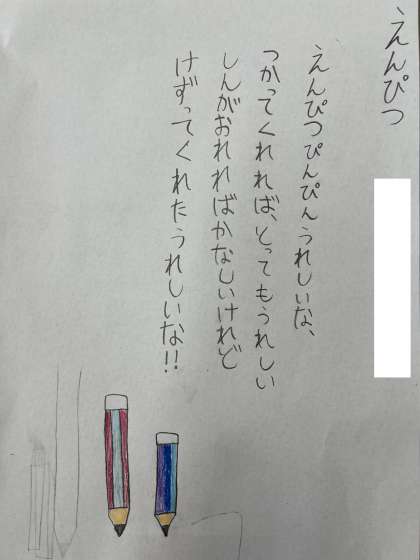 えんぴつ
えんぴつぴんぴんうれしいな、
つかってくれれば、とってもうれしい
しんがおれればかなしいけれど
けずってくれたうれしいな!!